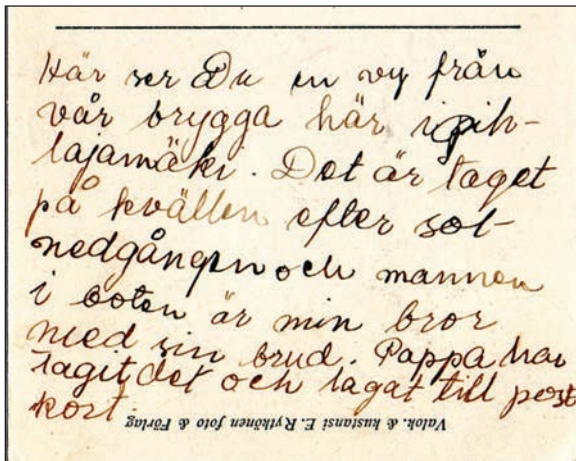 Här ser Du en vy från
vår brygga här i Pih-
lajamäki. Det är taget
på kvällen efter sol-
nedgången och mannen
i boten är min bror
med sin brud. Pappa har
tagit det och lagat till post
kort.
Valok. & kustansi E. Rytkönen foto & Förlag